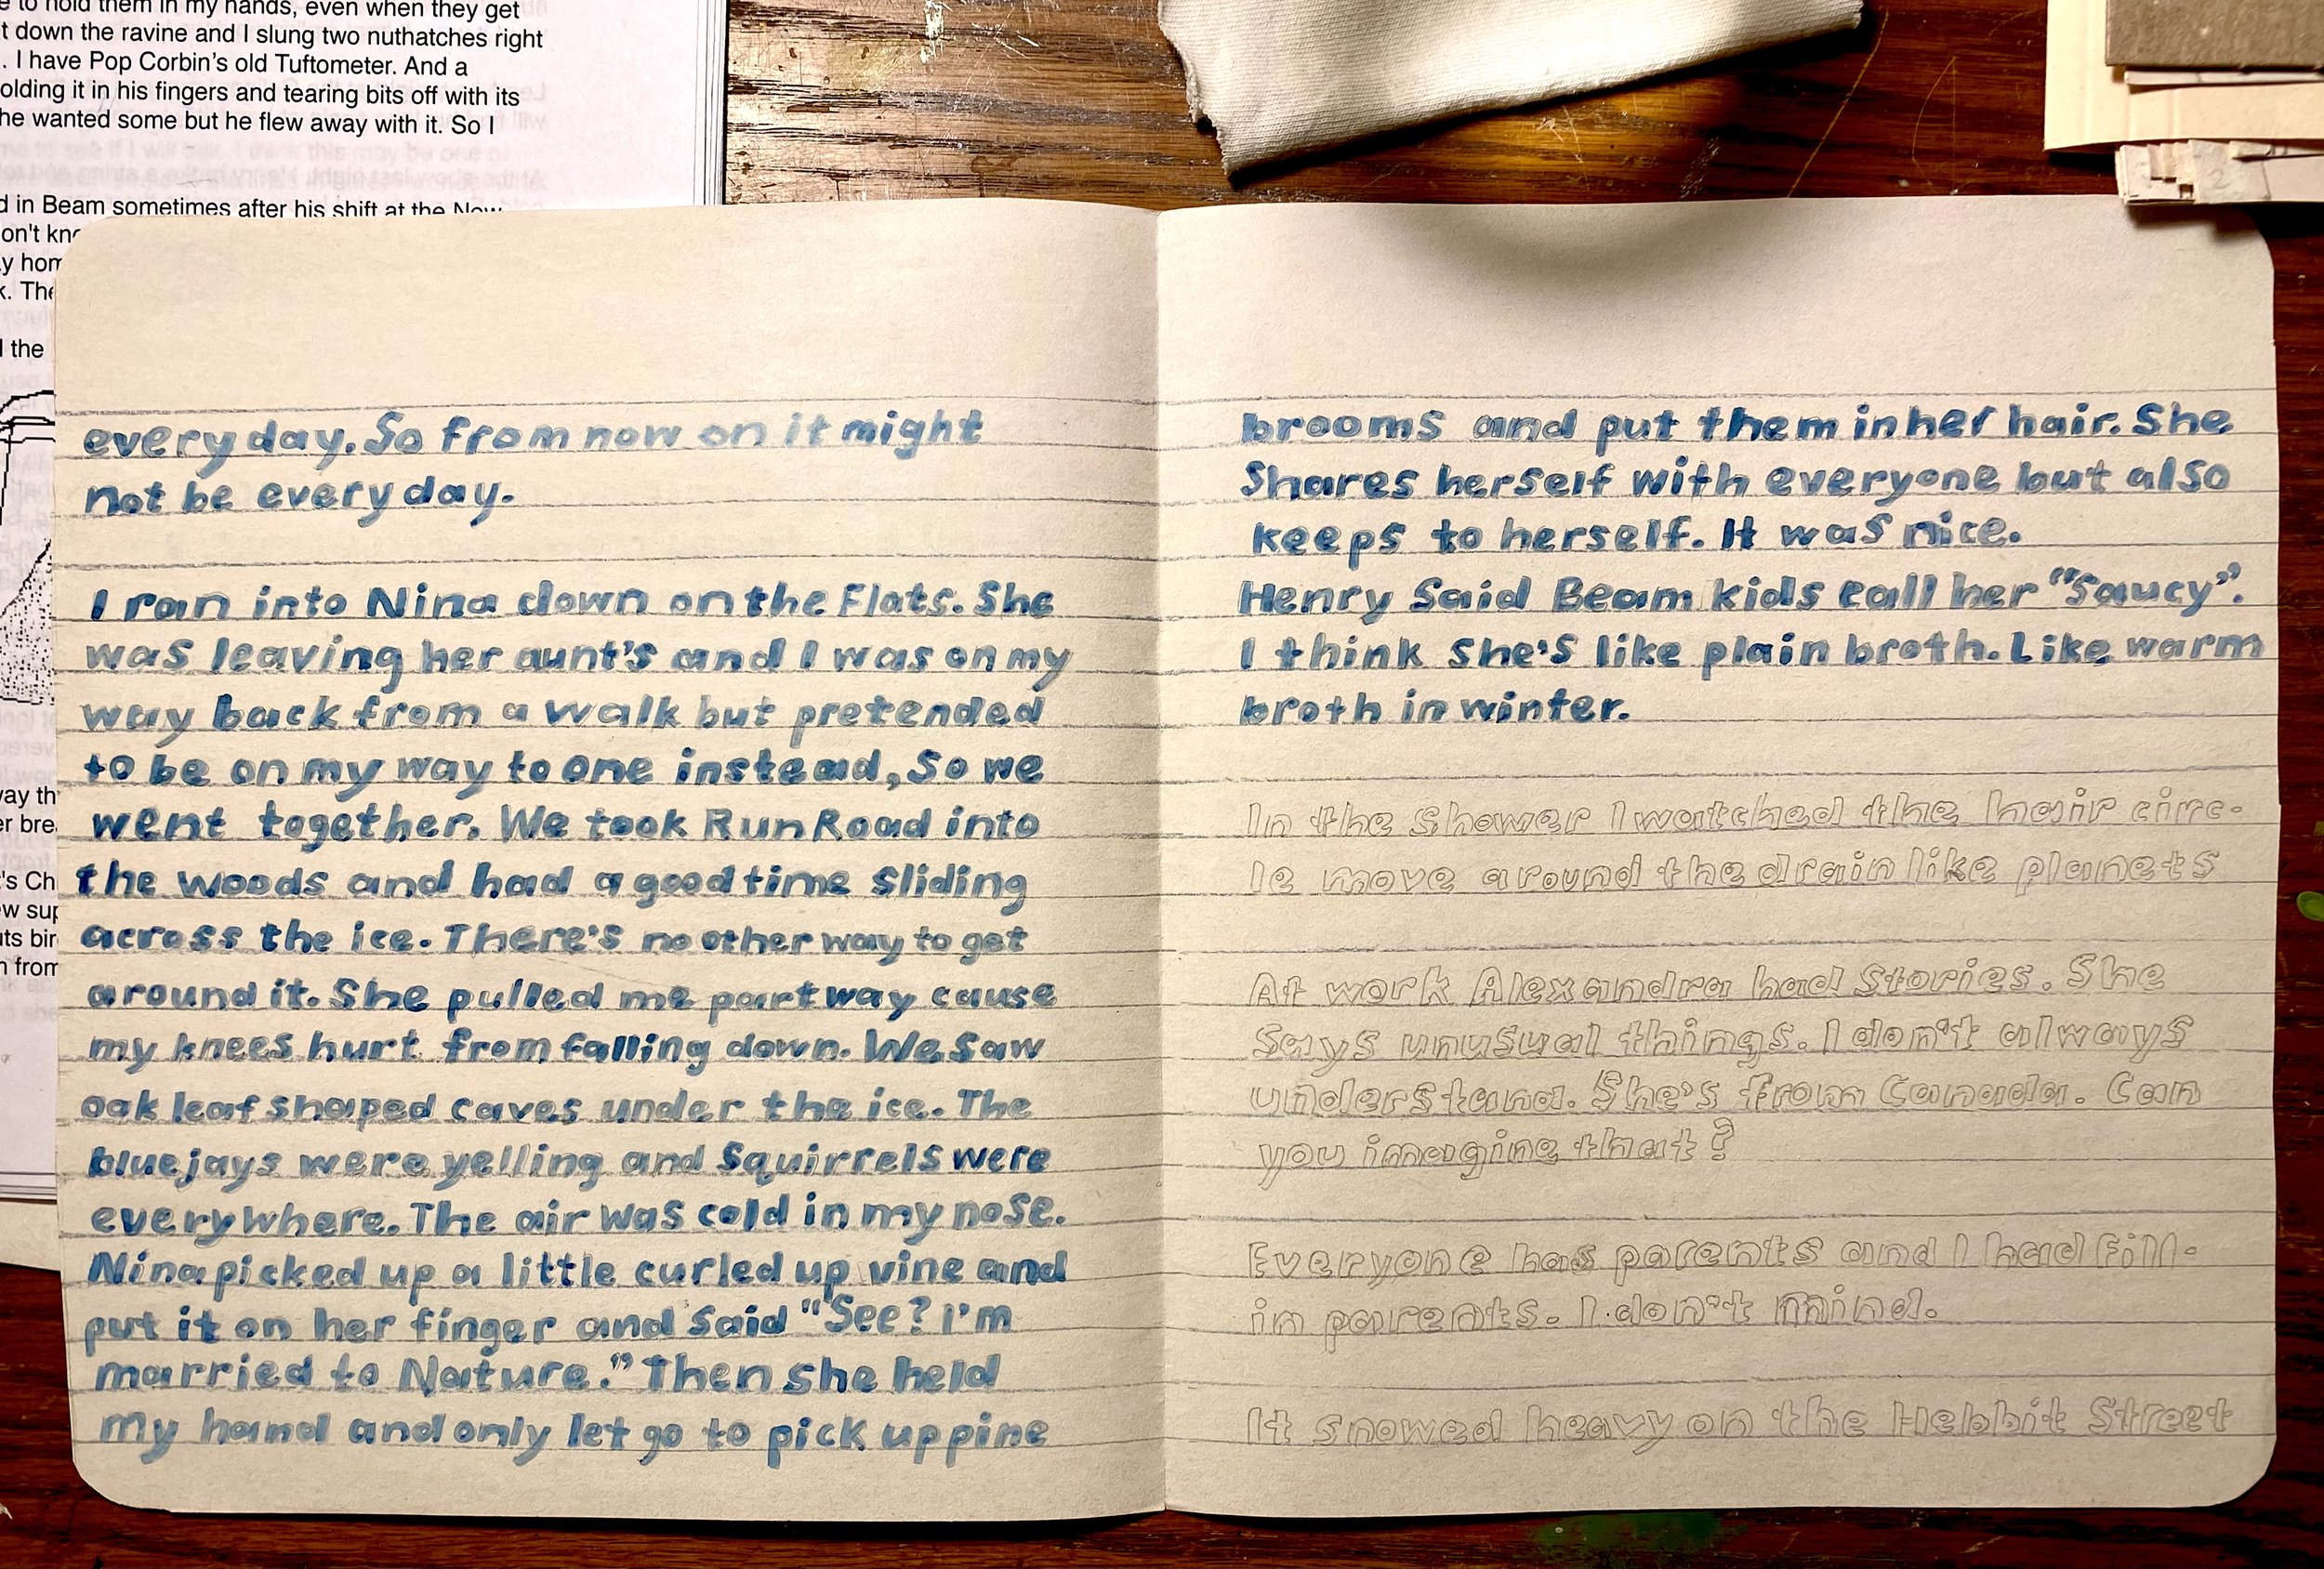 to hold them in my hands, even when they get
t down the ravine and I slung two nuthatches right
. I have Pop Corbin's old Tuftometer. And a
olding it in his fingers and tearing bits off with its
he wanted some but he flew away with it. So I
d in Beam sometimes after his shift at the Now
on't kn
y hom
k. The
l the
way th
er bre
's Ch
ew sup
ts bir
n from
every day. So from now on it might
not be every day.
I ran into Nina down on the Flats. She
was leaving her aunt's and I was on my
way back from a walk but pretended
to be on my way to one instead, So we
went together. We took Run Road into
the woods and had a good time sliding
across the ice. There's no other way to get
around it. She pulled me part way cause
my knees hurt from falling down. We Saw
oak leaf shaped caves under the ice. The
bluejays were yelling and Squirrels were
everywhere. The air was cold in my nose.
Nina picked up a little curled up vine and
put it on her finger and Said "See? I'm
married to Nature." Then she held
my hand and only let go to pick up pine
brooms and put them in her hair. She
Shares herself with everyone but also
keeps to herself. It was nice.
Henry Said Beam kids call her "Saucy".
I think She's like plain broth. Like warm
broth in winter.
In the shower I watched the hair circ-
le move around the drain like planets
At work Alexandra had Stories. She
Says unusual things. I don't always
understand. She's from Canada. Can
you imagine that?
Everyone has parents and I had fill-
in parents. I don't mind.
It snowed heavy on the Hebbit Street
2